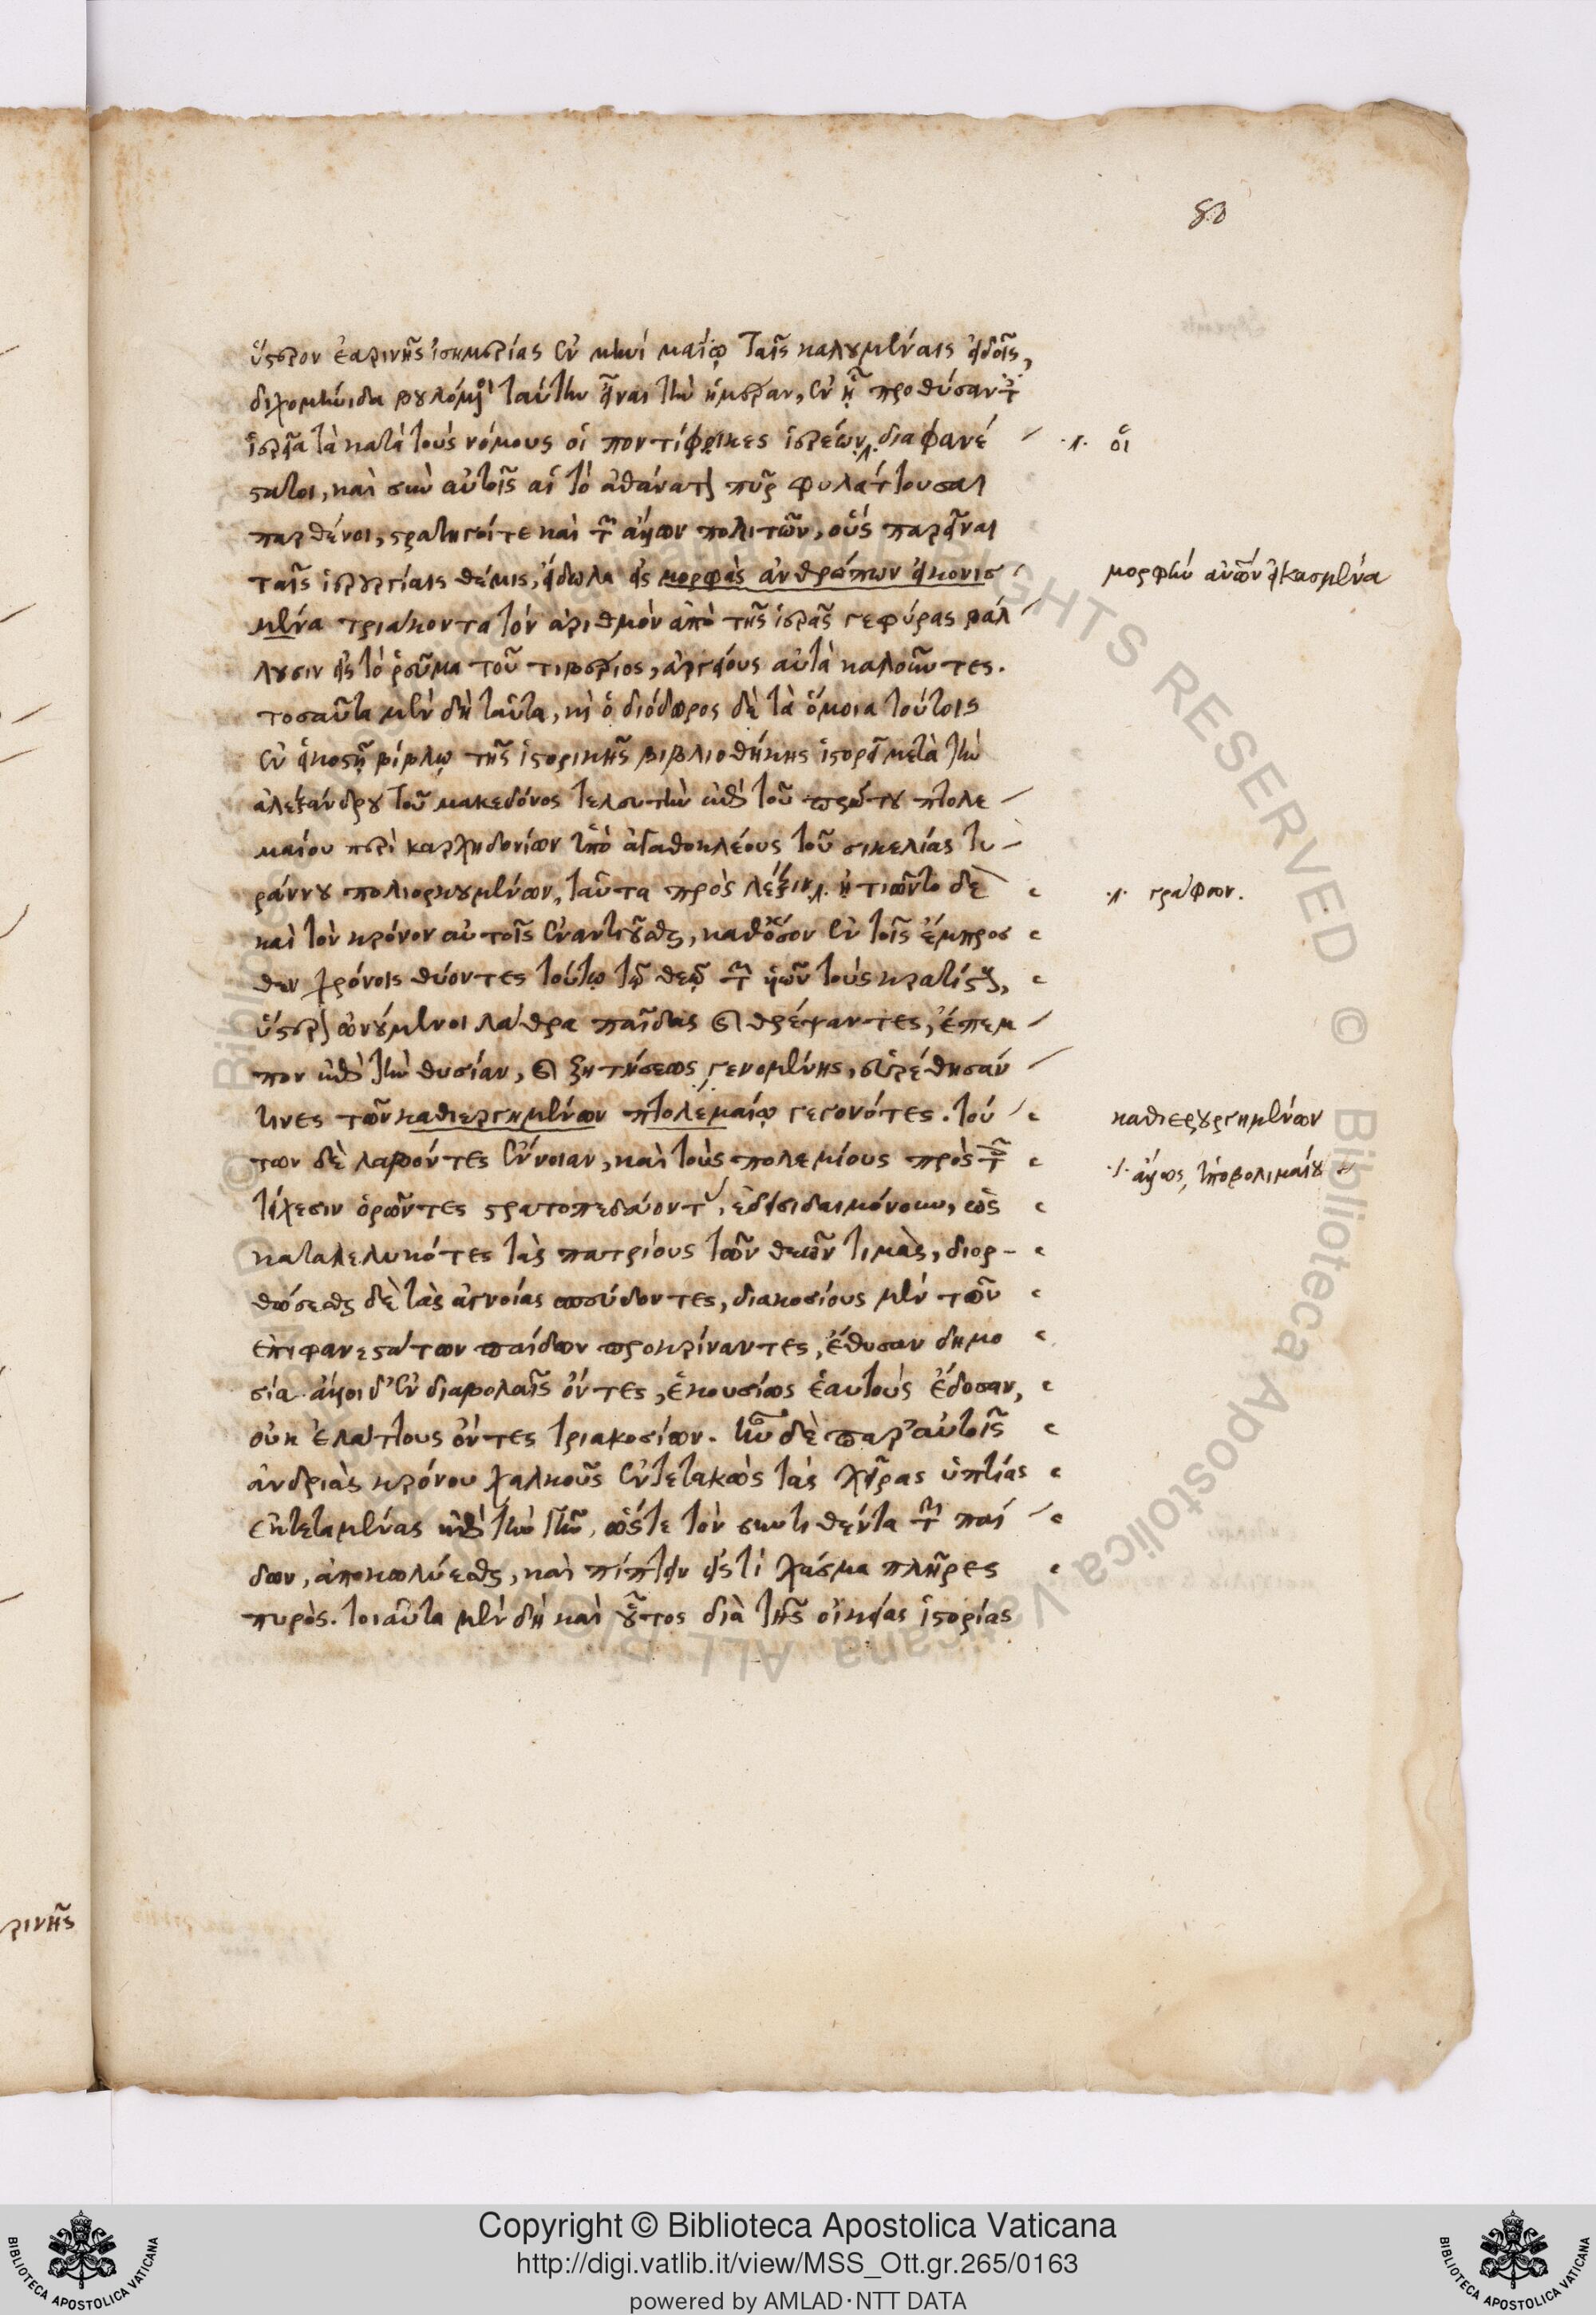 80
ὕστερον ἐαρινῆς ἰσημερίας ἐν μηνὶ μαΐῳ ταῖς καλουμέναις εἰδοῖς,
διχομήνιδα βουλόμενοι ταύτην εἶναι τὴν ἡμέραν, ἐν ᾗ προθύσαντες
ἱερεῖα τὰ κατὰ τοὺς νόμους οἱ ποντίφρικες ἱερέων διαφανέ
·/· οἱ
στατοι, καὶ σὺν αὐτοῖς αἱ τὸ ἀθάνατον πῦρ φυλάττουσαι
παρθένοι, στρατηγοί τε καὶ τῶν ἄλλων πολιτῶν, οὓς παρεῖναι
ταῖς ἱερουργίαις θέμις, εἴδωλα εἰς μορφὰς ἀνθρώπων εἰκονισ
μορφὴν ἀνῶν εἰκασμένα
μένα τριάκοντα τὸν ἀριθμὸν ἀπὸ τῆς ἱερᾶς γεφύρας βάλ
λουσιν εἰς τὸ ῥεῦμα τοῦ τιβέριος, ἀργείους αὐτὰ καλοῦντες.
τοσαῦτα μὲν δὴ ταῦτα, κὶ ὁ διόδωρος δὲ τὰ ὅμοια τούτοις
ἐν εἰκοστῇ βίβλῳ τῆς ἱστορικῆς βιβλιοθήκης ἱστορεῖ μετὰ τὴν
ἀλεξάνδρου τοῦ μακεδόνος τελευτὴν ἐπὶ τοῦ πρώτου πτολε
μαίου περὶ καρχηδονίων ὑπὸ ἀγαθοκλέους τοῦ σικελίας τυ
ράννου πολιορκουμένων, ταῦτα πρὸς λέξιν ·/· ᾐτιῶντο δὲ
·/· γράφων.
καὶ τὸν κρόνον αὐτοῖς ἐναντιοῦσθαι, καθόσον ἐν τοῖς ἔμπροσ
θεν χρόνοις θύοντες τούτῳ τῷ θεῷ τῶν υἱῶν τοὺς κρατίστους,
ὕστερον ὠνούμενοι λάθρα παῖδας καὶ θρέψαντες, ἔπεμ
πον ἐπὶ τὴν θυσίαν, καὶ ζητήσεως γενομένης, εὑρέθησάν
τινες τῶν καθιεργημένων πτολεμαίῳ γεγονότες. τού
καθιερουργημένων
των δὲ λαβόντες ἔννοιαν, καὶ τοὺς πολεμίους πρὸς τοῖς
·/· ἄλλως, ὑποβολιμαίου
τείχεσιν ὁρῶντες στρατοπεδεύοντας, ἐδεισιδαιμόνουν, ὡς
καταλελυκότες τὰς πατρίους τῶν θεῶν τιμὰς, διορ-
θώσεσθαι δὲ τὰς ἀγνοίας σπεύδοντες, διακοσίους μὲν τῶν
ἐπιφανεστάτων παίδων προκρίναντες, ἔθυσαν δημο
σία. ἄλλοι δ' ἐν διαβολαῖς ὄντες, ἑκουσίως ἑαυτοὺς ἔδοσαν,
οὐκ ἐλάττους ὄντες τριακοσίων. ἦν δὲ παρ' αὐτοῖς
ἀνδριὰς κρόνου χαλκοῦς ἐκτετακὼς τὰς χεῖρας ὑπτίας
ἐκτεταμένας ἐπὶ τὴν γῆν, ὥστε τὸν συντιθέντα τῶν παί
δων, ἀποκωλύεσθαι, καὶ πίπτειν εἴς τι χάσμα πλῆρες
πυρὸς. τοιαῦτα μὲν δὴ καὶ οὗτος διὰ τῆς οἰκείας ἱστορίας
ρινῆς
Copyright © Biblioteca Apostolica Vaticana
http://digi.vatlib.it/view/MSS_Ott.gr.265/0163
powered by AMLAD·NTT DATA